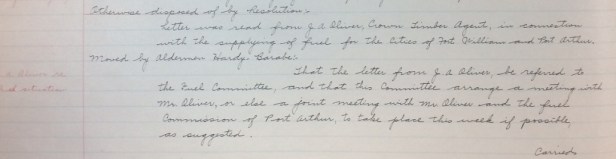 Otherwise disposed of by Resolution:-
Letter was read from J A Oliver, Crown Timber Agent, in connection
with the supplying of fuel for the Cities of Fort William and Port Arthur.
Moved by Alderman Hardy: Barabe:
That the letter from J. A Oliver, be referred to
the Fuel Committee, and that this Committee arrange a meeting with
Mr. Oliver, or else a joint meeting with Mr Oliver and the fuel
Commission of Port Arthur, to take place this week if possible,
as suggested.
Carried